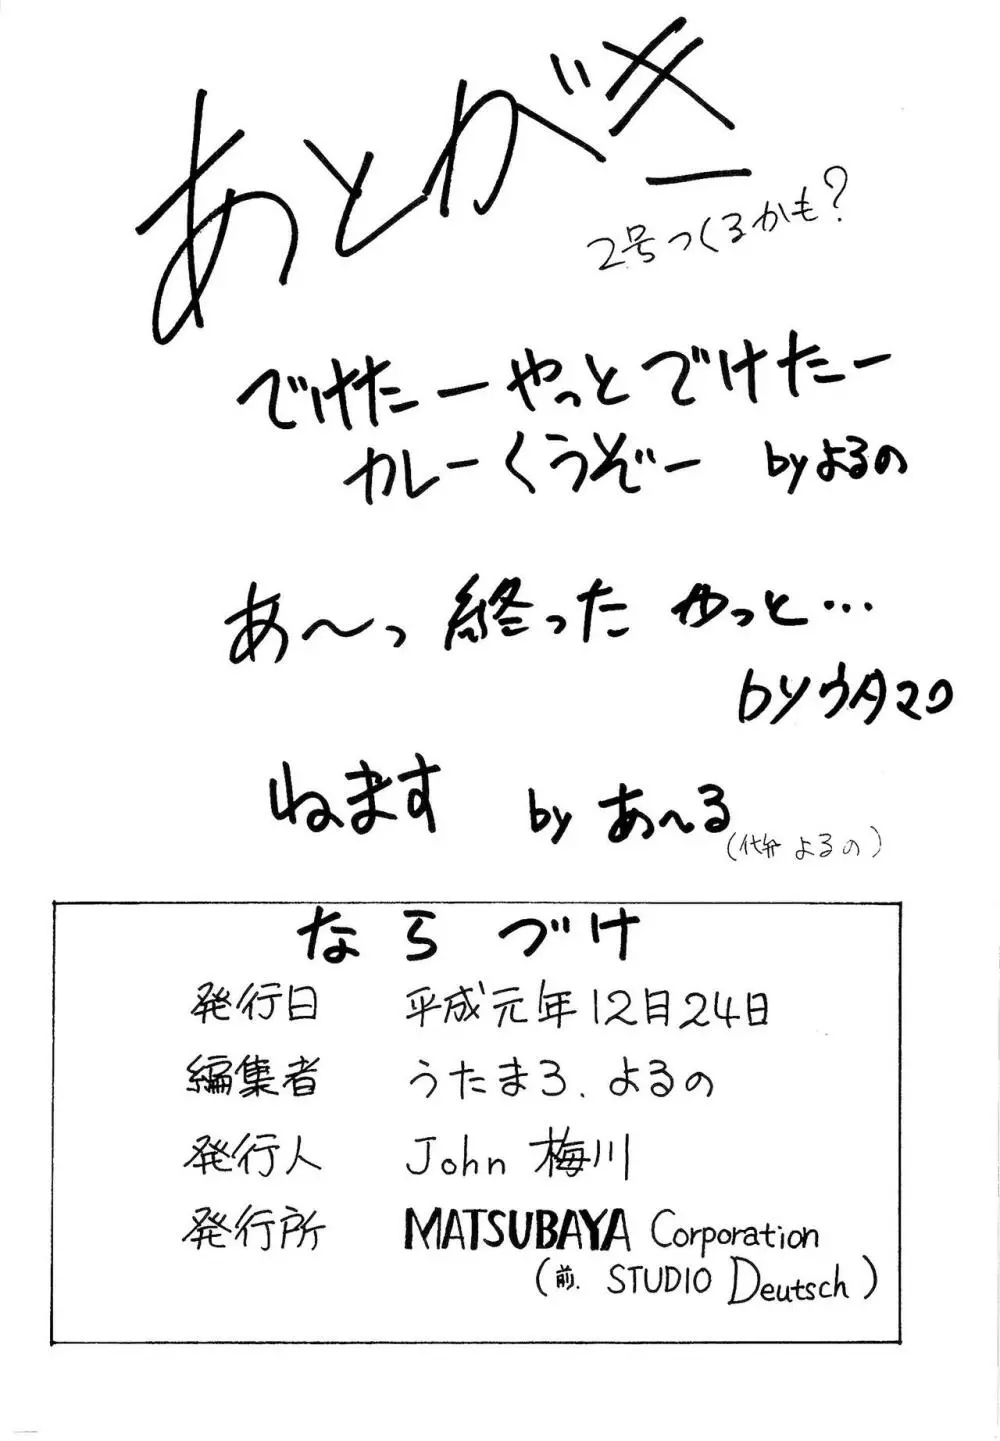 あとがき
2号つくるかも?
でけたーやっとでけたー
カレーくうぞー byよるの
あ〜っ 終った やっと…
byウタマロ
ねます by あ〜る
(代弁 よるの)
ならづけ
発行日 平成元年12月24日
編集者 うたまろ. よるの
発行人 John 梅川
発行所 MATSUBAYA Corporation
(前. STUDIO Deutsch)